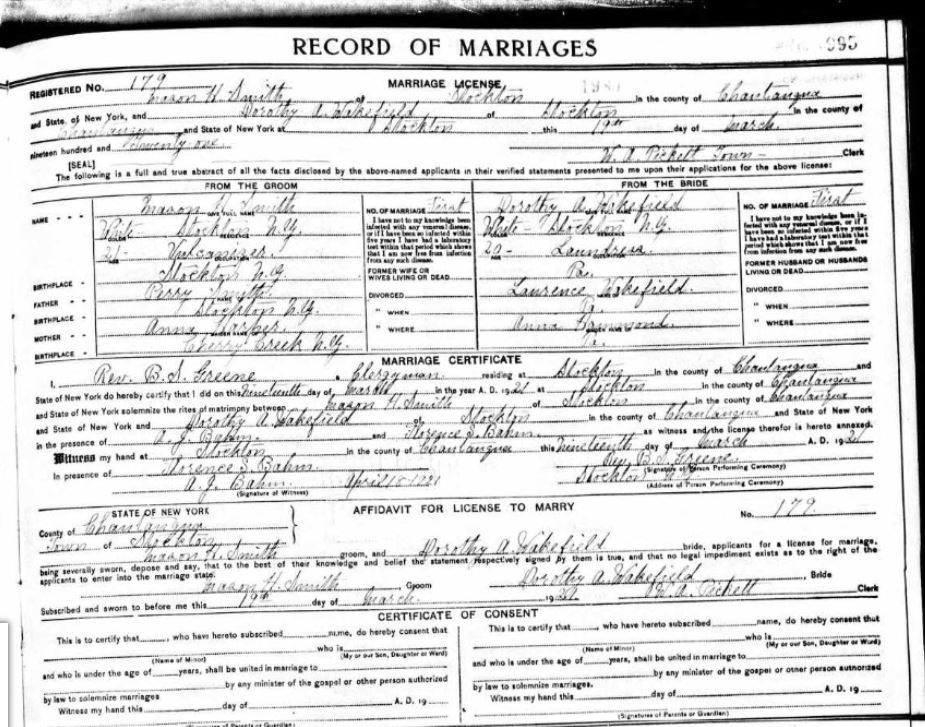 RECORD OF MARRIAGES
995
REGISTERED No. 179 MARRIAGE LICENSE
Mason H. Smith of Stockton in the county of Chautauqua
and State of New York, and Dorothy A. Wakefield of Stockton in the county of
Chautauqua and State of New York at Stockton this 19th day of March
nineteen hundred and Twenty one W. A. Pickett Town - Clerk
[SEAL]
The following is a full and true abstract of all the facts disclosed by the above-named applicants in their verified statements presented to me upon their applications for the above license:
FROM THE GROOM FROM THE BRIDE
NAME - - - Mason H. Smith NO. OF MARRIAGE First Dorothy A. Wakefield NO. OF MARRIAGE First
White - Stockton N.Y. White - Stockton N.Y.
I have not to my knowledge been infected with any venereal disease, or if I have been so infected within five years I have had a laboratory test within that period which shows that I am now free from infection from any such disease.
20 - Laundress
BIRTHPLACE - Stockton N.Y. FORMER WIFE OR WIVES LIVING OR DEAD Pa. FORMER HUSBAND OR HUSBANDS LIVING OR DEAD
FATHER - - Perry Smith DIVORCED Laurence Wakefield DIVORCED
BIRTHPLACE - Stockton N.Y. " WHEN Pa. " WHEN
MOTHER - - Anna " WHERE Anna Hammond " WHERE
BIRTHPLACE - Cherry Creek N.Y. Pa.
MARRIAGE CERTIFICATE
I, Rev. B. S. Greene a Clergyman residing at Stockton in the county of Chautauqua and
State of New York do hereby certify that I did on this Nineteenth day of March in the year A. D. 1921 at Stockton in the county of Chautauqua
and State of New York solemnize the rites of matrimony between Mason H. Smith of Stockton in the county of Chautauqua
and State of New York and Dorothy A. Wakefield of Stockton in the county of Chautauqua and State of New York
in the presence of A. J. Bahm. and Florence S. Bahm. as witness and the license therefor is hereto annexed.
Witness my hand at Stockton in the county of Chautauqua this nineteenth day of March A. D. 1921
In presence of Florence S. Bahm. Rev. B. S. Greene
(Signature of Person Performing Ceremony)
A. J. Bahm. April 18 1921 Stockton N.Y.
(Signature of Witness) (Address of Person Performing Ceremony)
STATE OF NEW YORK AFFIDAVIT FOR LICENSE TO MARRY No. 179
County of Chautauqua
Town of Stockton
Mason H. Smith groom, and Dorothy A. Wakefield bride, applicants for a license for marriage,
being severally sworn, depose and say, that to the best of their knowledge and belief the statement respectively signed by them is true, and that no legal impediment exists as to the right of the
applicants to enter into the marriage state.
Mason H. Smith Groom Dorothy A. Wakefield, Bride
Subscribed and sworn to before me this 19th day of March 1921 W. A. Pickett Clerk
CERTIFICATE OF CONSENT
This is to certify that, who have hereto subscribed name, do hereby consent that This is to certify that, who have hereto subscribed name, do hereby consent that
who is who is
(Name of Minor) (My or our Son, Daughter or Ward) (Name of Minor) (My or our Son, Daughter or Ward)
and who is under the age of years, shall be united in marriage to and who is under the age of years, shall be united in marriage to
by any minister of the gospel or other person authorized by any minister of the gospel or other person authorized
by law to solemnize marriages by law to solemnize marriages.
Witness my hand this day of A. D. 19 Witness my hand this day of A. D. 19
(Signatures of Parents or Guardian) (Signatures of Parents or Guardian)